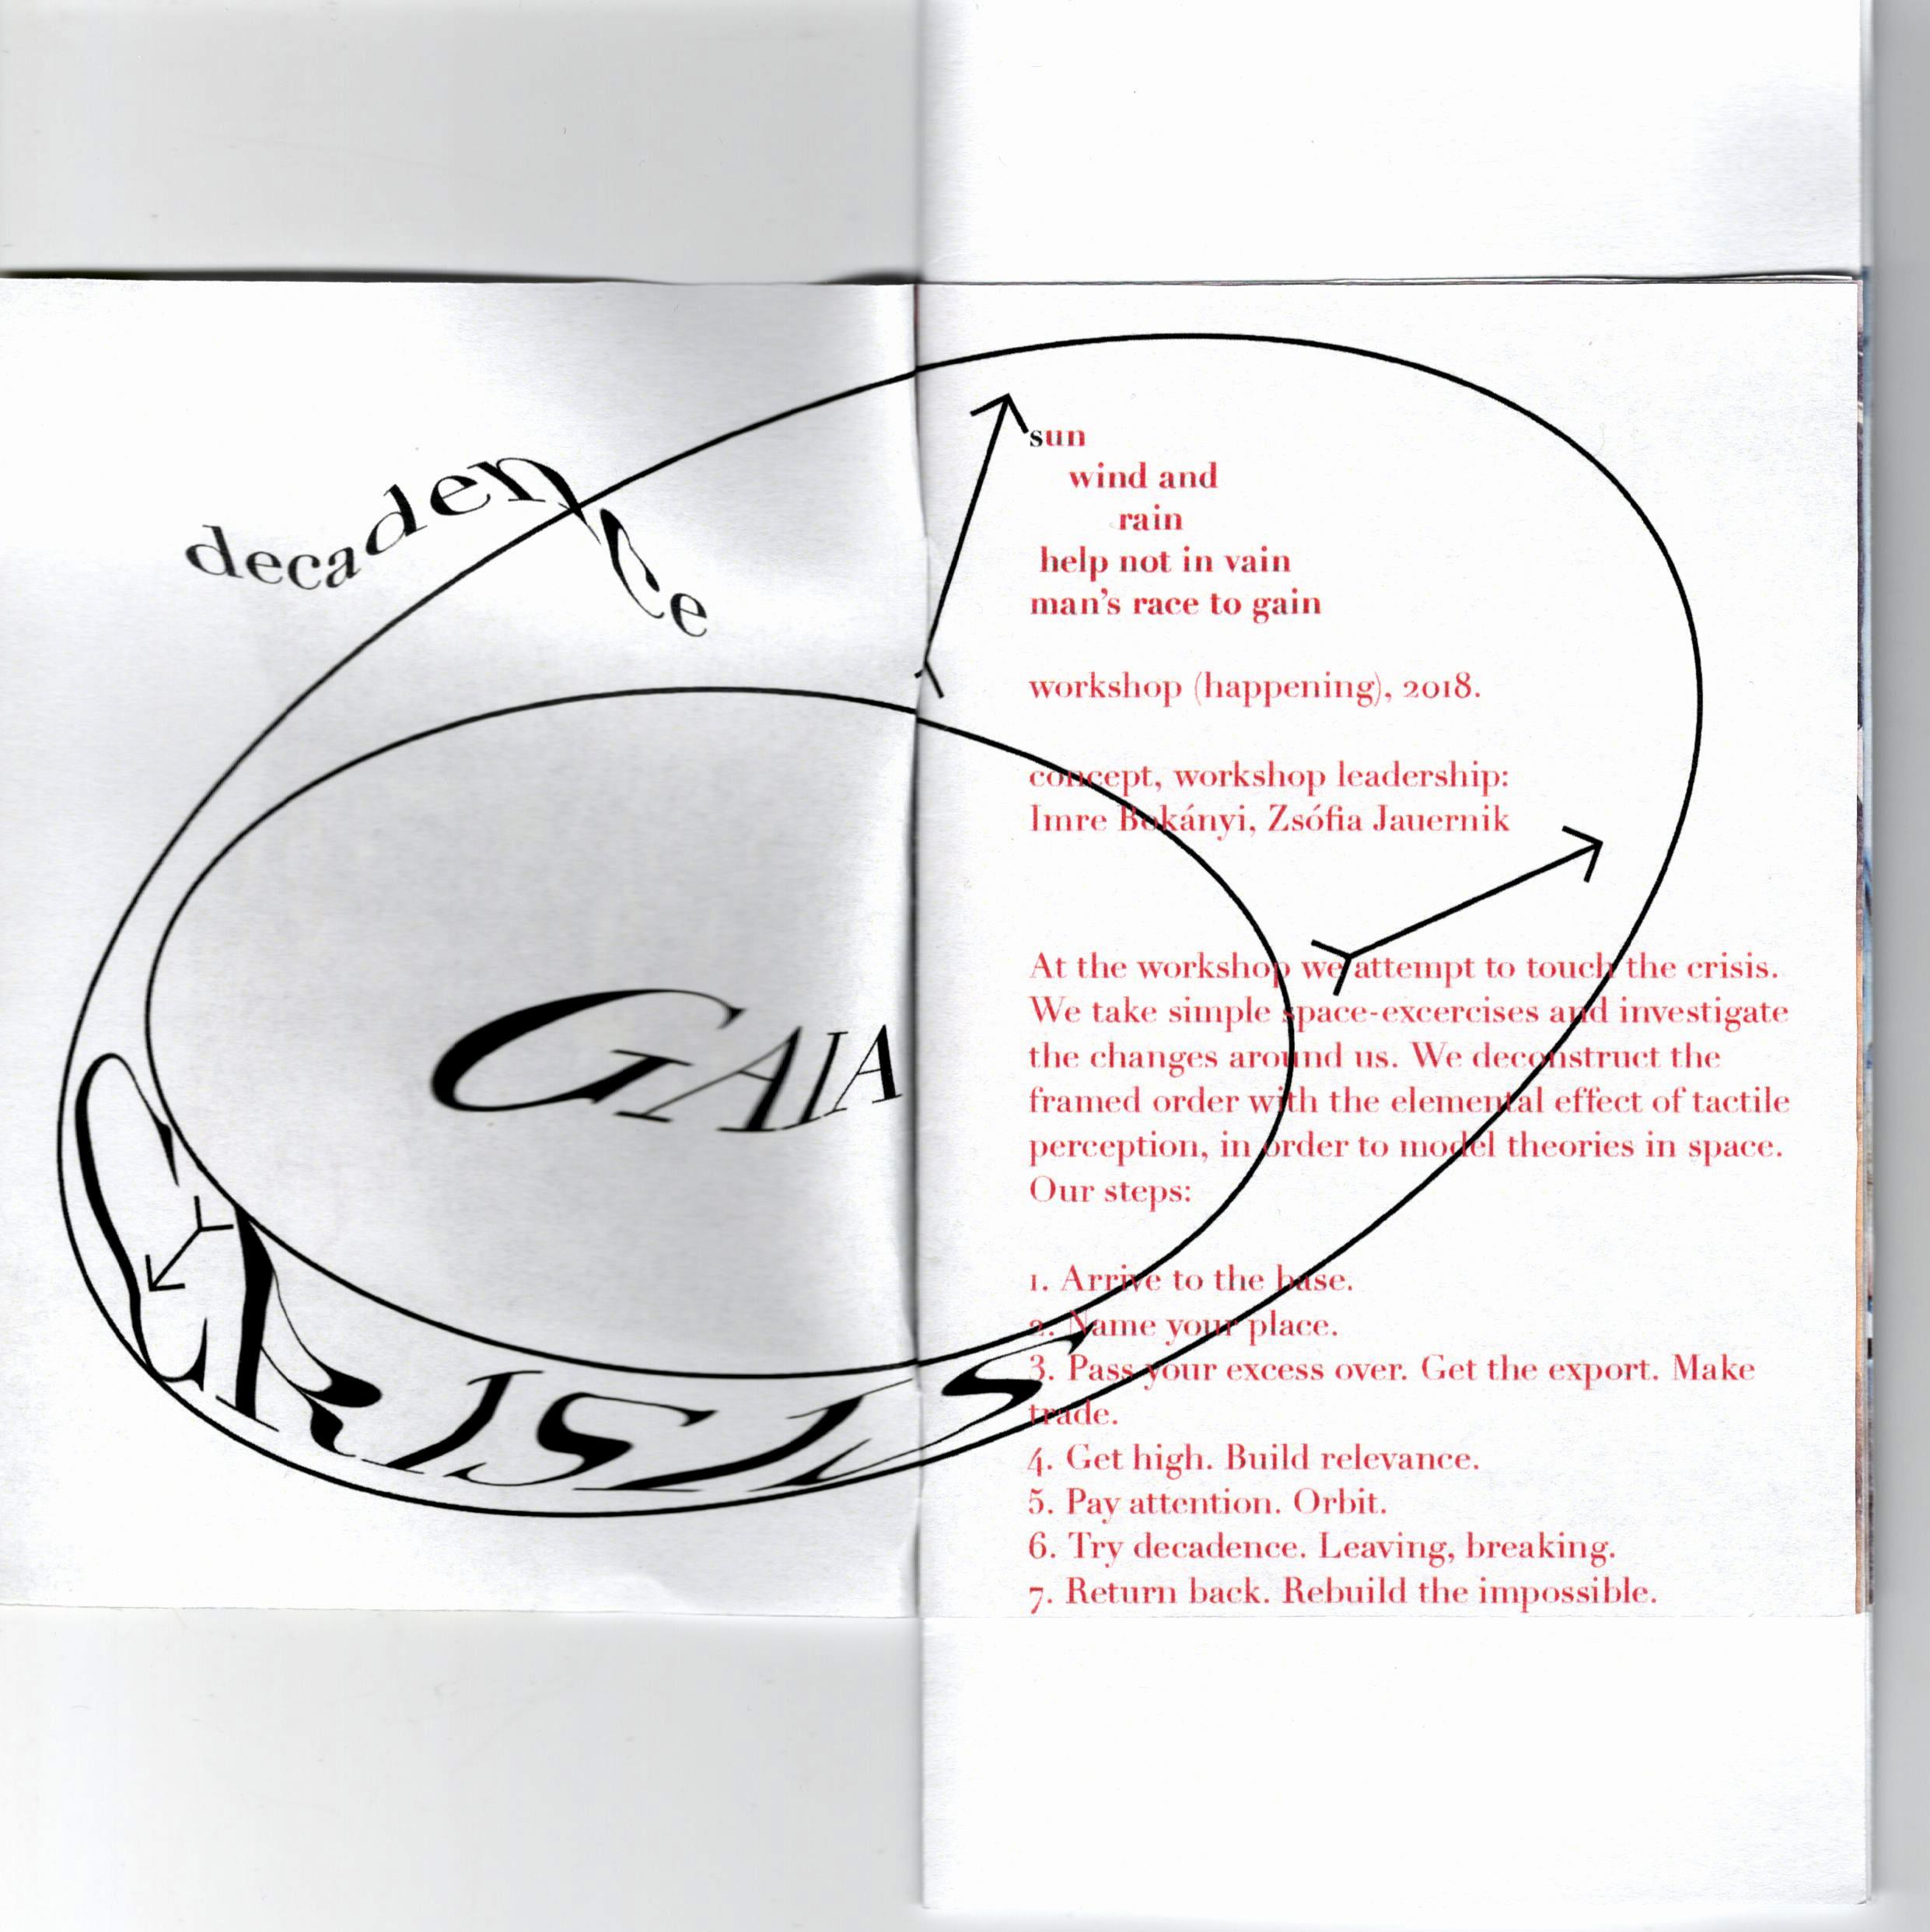 decadence
GAIA
CRISIS
sun
wind and
rain
help not in vain
man's race to gain
workshop (happening), 2018.
concept, workshop leadership:
Imre Bokányi, Zsófia Jauernik
At the workshop we attempt to touch the crisis.
We take simple space-excercises and investigate
the changes around us. We deconstruct the
framed order with the elemental effect of tactile
perception, in order to model theories in space.
Our steps:
1. Arrive to the base.
2. Name your place.
3. Pass your excess over. Get the export. Make
trade.
4. Get high. Build relevance.
5. Pay attention. Orbit.
6. Try decadence. Leaving, breaking.
7. Return back. Rebuild the impossible.